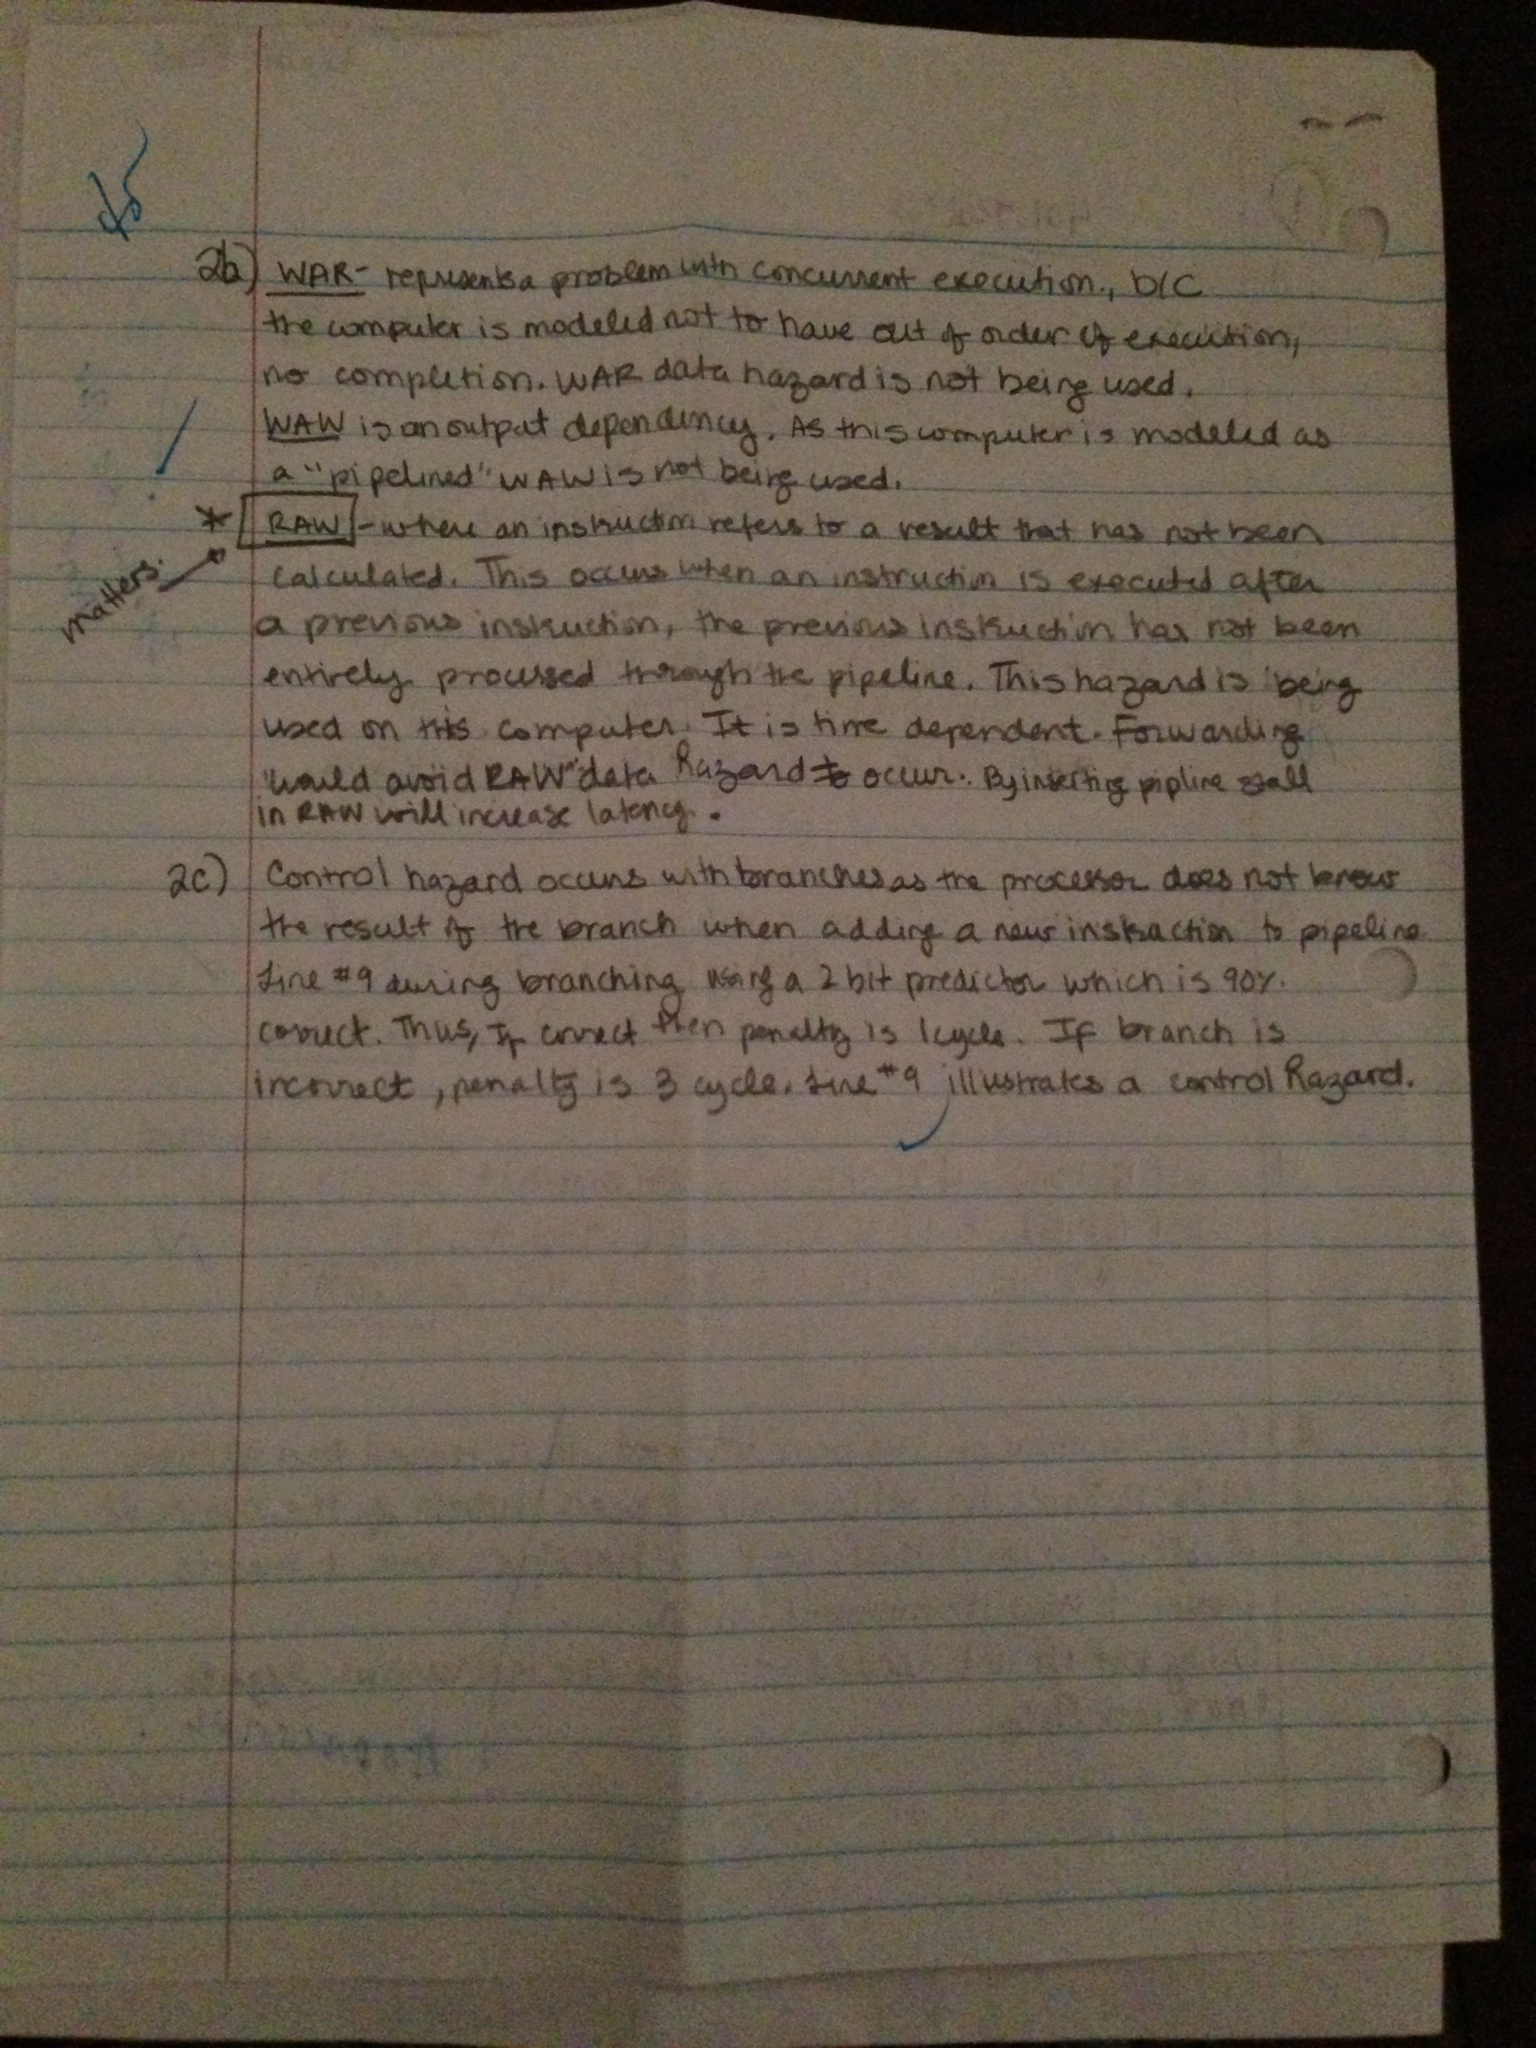 2b) WAR- represents a problem with concurrent execution., b/c
the computer is modeled not to have out of order of execution,
no completion. WAR data hazard is not being used.
WAW is an output dependency. As this computer is modeled as
a "pipelined" WAW is not being used.
* RAW - where an instruction refers to a result that has not been
matters.
calculated. This occurs when an instruction is executed after
a previous instruction, the previous instruction has not been
entirely processed through the pipeline. This hazard is being
used on this computer. It is time dependent. Forwarding
would avoid RAW" data hazard to occur. By inserting pipline stall
in RAW will increase latency.
2c) Control hazard occurs with branches as the processor does not know
the result of the branch when adding a new instruction to pipeline
Line #9 during branching using a 2 bit predictor which is 90%.
correct. Thus, If correct then penalty is 1 cycle. If branch is
incorrect, penalty is 3 cycle. Line #9 illustrates a control hazard.